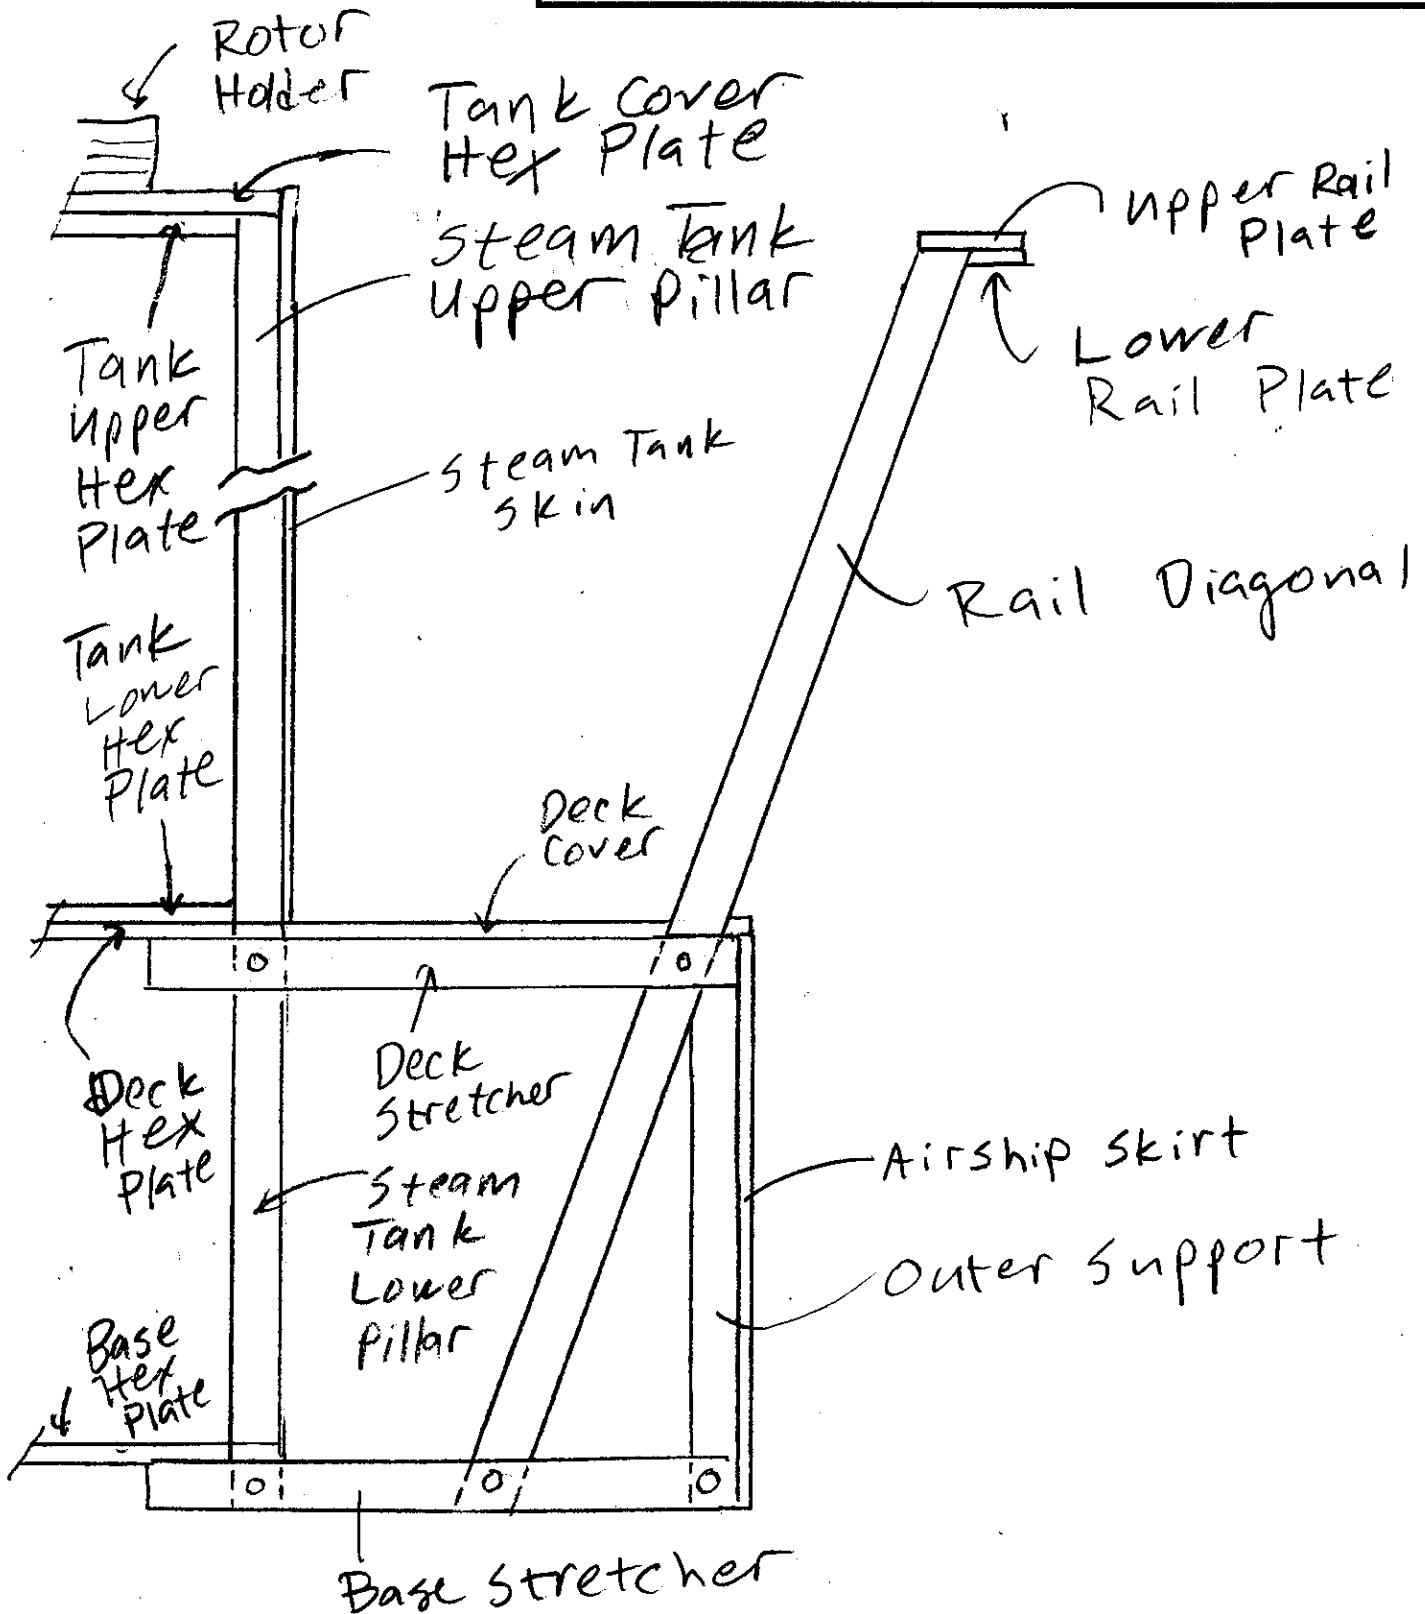 Rotor
Holder
Tank Cover
Hex Plate
Steam Tank
Upper Pillar
Upper Rail
Plate
Lower
Rail Plate
Tank
Upper
Hex
Plate
Steam Tank
Skin
Rail Diagonal
Tank
Lower
Hex
Plate
Deck
Cover
Deck
Hex
Plate
Deck
Stretcher
Steam
Tank
Lower
Pillar
Airship Skirt
Outer Support
Base
Hex
Plate
Base Stretcher